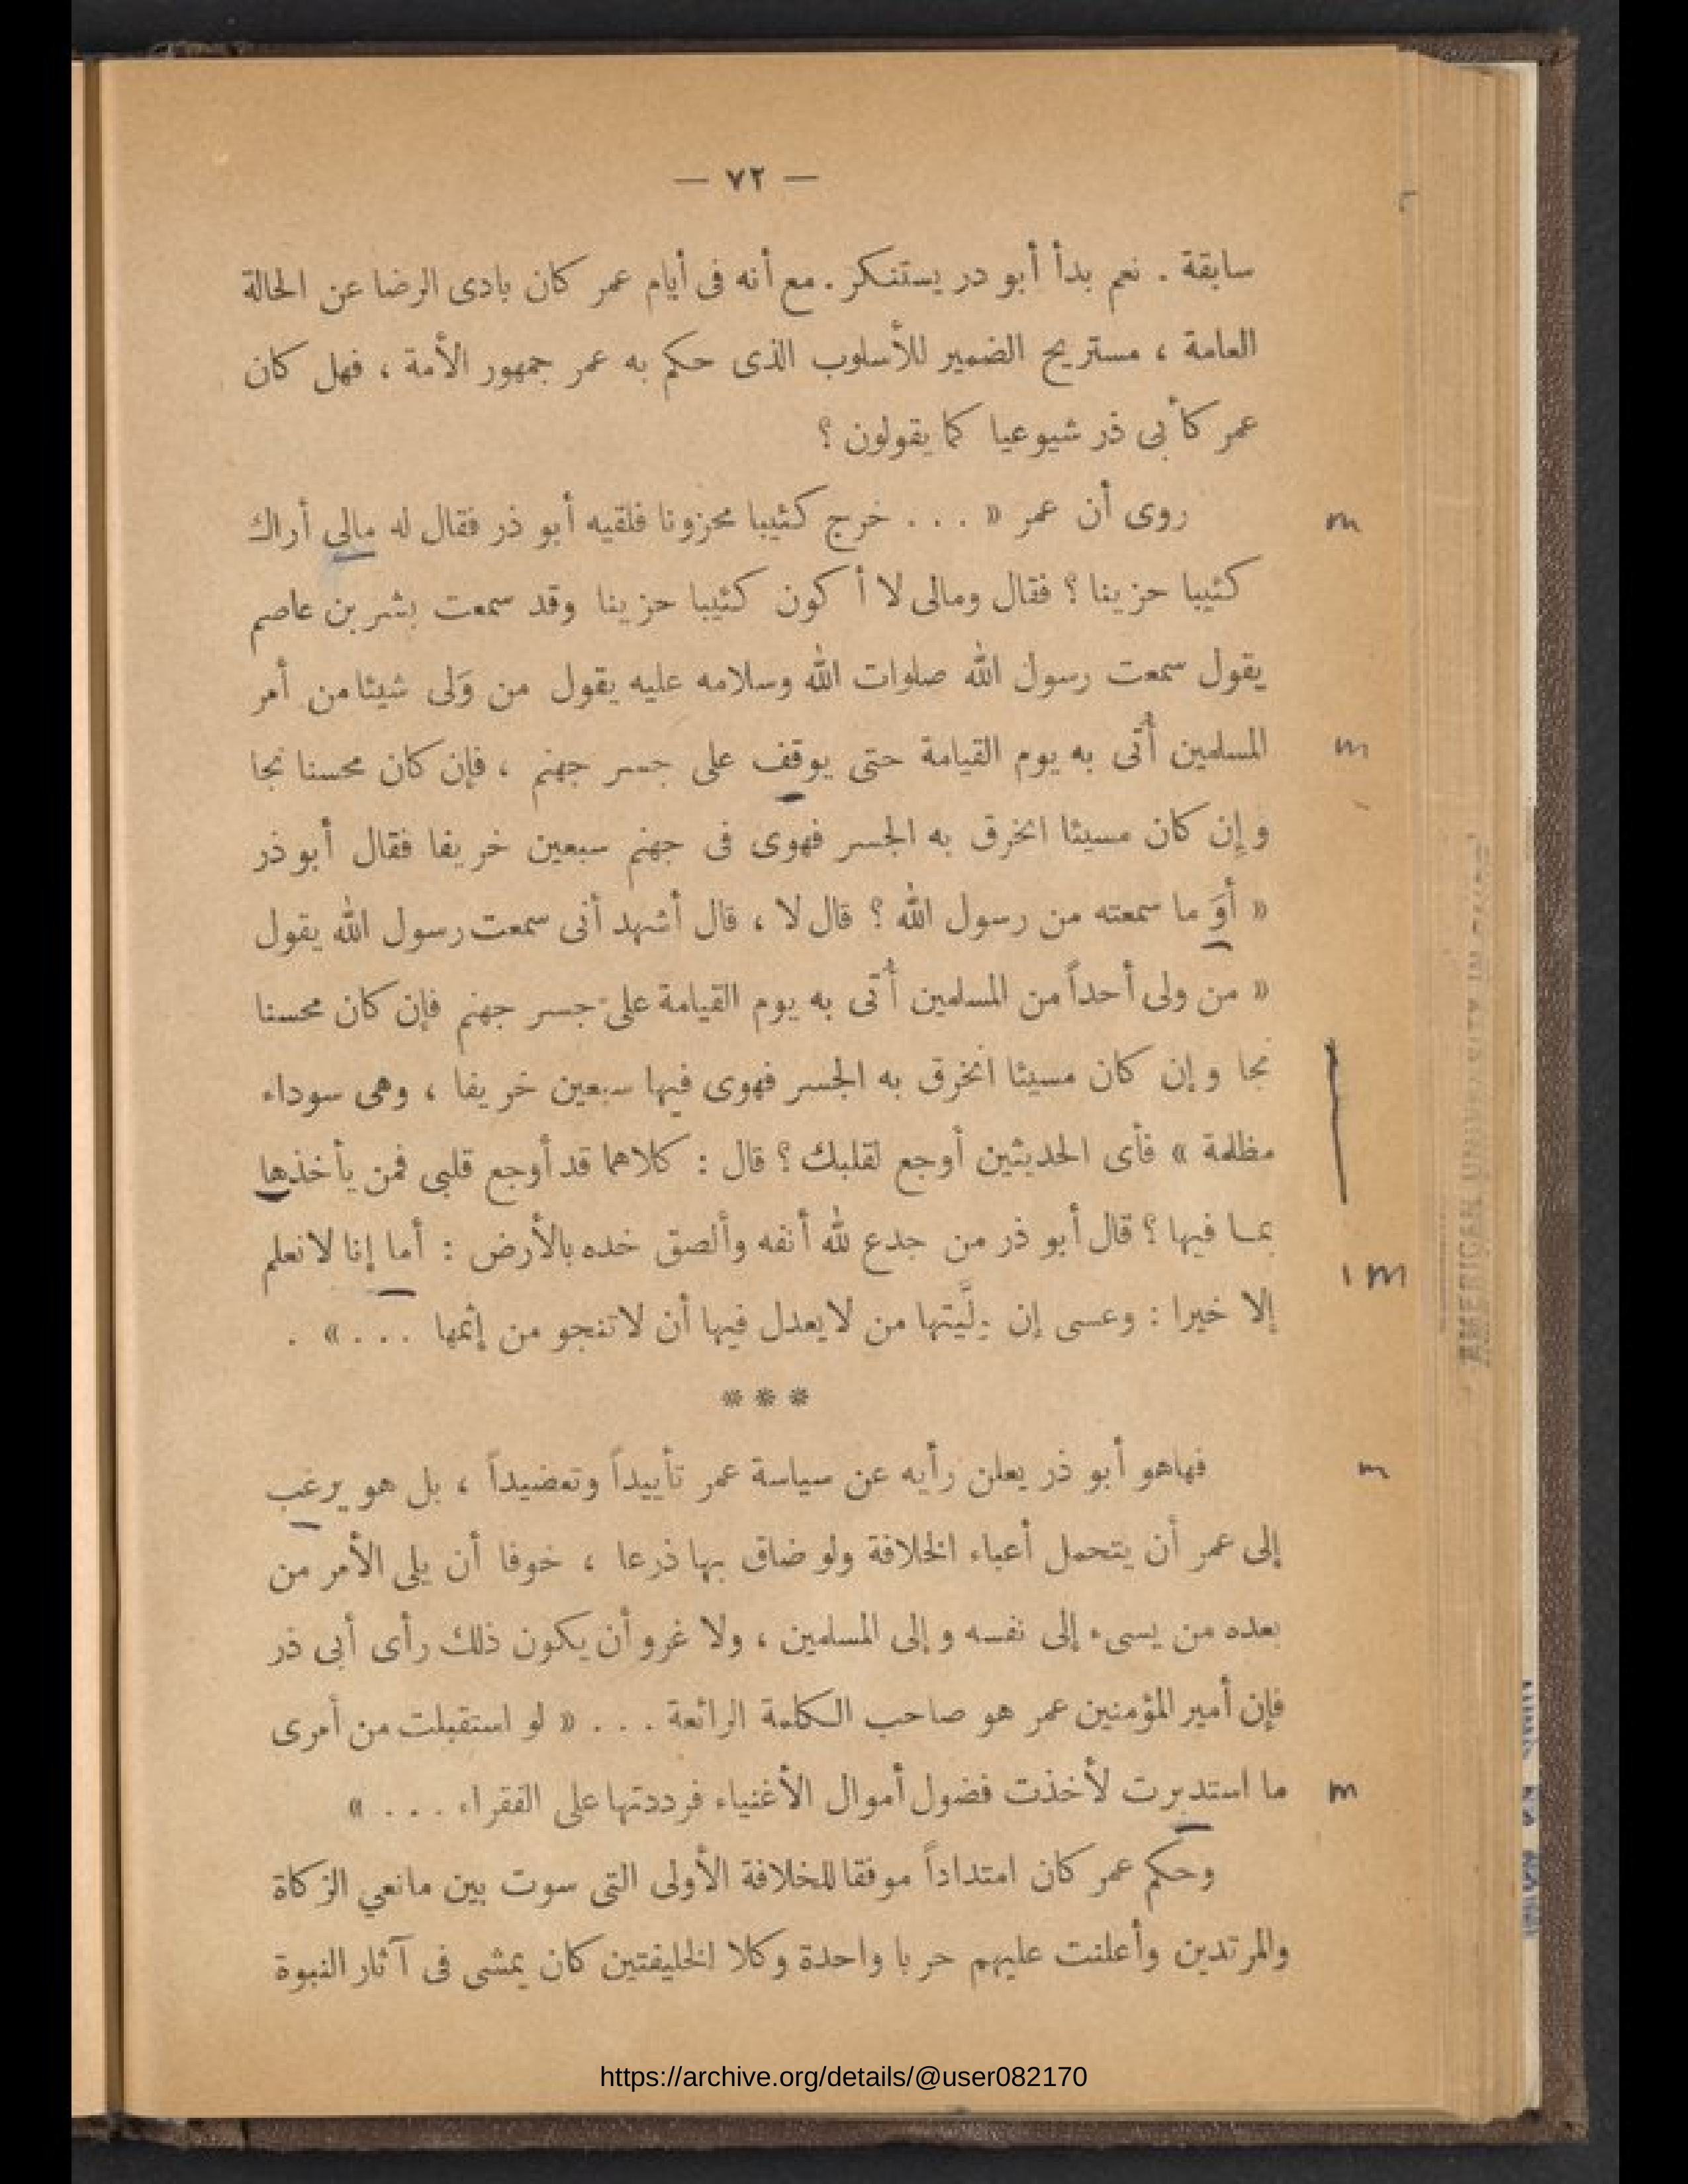 — ٧٢ —
سابقة . نعم بدأ أبو در يستنكر . مع أنه فى أيام عمر كان بادى الرضا عن الحالة
العامة ، مستريح الضمير للأسلوب الذى حكم به عمر جمهور الأمة ، فهل كان
عمر كأبى ذر شيوعيا كما يقولون ؟
روى أن عمر « . . . خرج كئيبا محزونا فلقيه أبو ذر فقال له مالى أراك
كئيبا حزينا ؟ فقال ومالى لا أكون كئيبا حزينا وقد سمعت بشر بن عاصم
يقول سمعت رسول الله صلوات الله وسلامه عليه يقول من وَلى شيئا من أمر
المسلمين أُتى به يوم القيامة حتى يوقف على جسر جهنم ، فإن كان محسنا نجا
وإن كان مسيئا انخرق به الجسر فهوى فى جهنم سبعين خريفا فقال أبو ذر
« أوَ ما سمعته من رسول الله ؟ قال لا ، قال أشهد أنى سمعت رسول الله يقول
« من ولى أحداً من المسلمين أُتى به يوم القيامة على جسر جهنم فإن كان محسنا
نجا وإن كان مسيئا انخرق به الجسر فهوى فيها سبعين خريفا ، وهى سوداء
مظلمة » فأى الحديثين أوجع لقلبك ؟ قال : كلاهما قد أوجع قلبى فمن يأخذها
بما فيها ؟ قال أبو ذر من جدع لله أنفه وألصق خده بالأرض : أما إنا لانعلم
إلا خيرا : وعسى إن ولَّيتها من لايعدل فيها أن لاتنجو من إثمها . . . » .
* * *
فهاهو أبو ذر يعلن رأيه عن سياسة عمر تأييداً وتعضيداً ، بل هو يرغب
إلى عمر أن يتحمل أعباء الخلافة ولو ضاق بها ذرعا ، خوفا أن يلى الأمر من
بعده من يسىء إلى نفسه وإلى المسلمين ، ولا غرو أن يكون ذلك رأى أبى ذر
فإن أمير المؤمنين عمر هو صاحب الكلمة الرائعة . . . « لو استقبلت من أمرى
ما استدبرت لأخذت فضول أموال الأغنياء فرددتها على الفقراء . . . »
وحكم عمر كان امتداداً موفقا للخلافة الأولى التى سوت بين مانعي الزكاة
والمرتدين وأعلنت عليهم حربا واحدة وكلا الخليفتين كان يمشى فى آثار النبوة
https://archive.org/details/@user082170